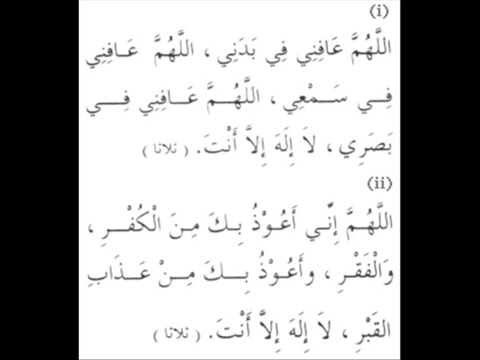 (i)
اللَّهُمَّ عَافِنِي فِي بَدَنِي ، اللَّهُمَّ عَافِنِي
فِي سَمْعِي ، اللَّهُمَّ عَافِنِي فِي
بَصَرِي ، لاَ إِلَهَ إِلاَّ أَنْتَ. ( ثلاثا )
(ii)
اللَّهُمَّ إِنِّي أَعُوْذُ بِكَ مِنَ الْكُفْرِ ،
وَالْفَقْرِ ، وَأَعُوْذُ بِكَ مِنْ عَذَابِ
القَبْرِ ، لاَ إِلَهَ إِلاَّ أَنْتَ. ( ثلاثا )